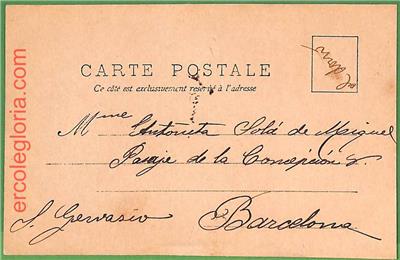 CARTE POSTALE
Ce côté est exclusivement réservé à l'adresse
Mme Antonieta Solá de Maiguel
Pasaje de la Concepción
S. Gervasio
Barcelona
ercolegloria.com